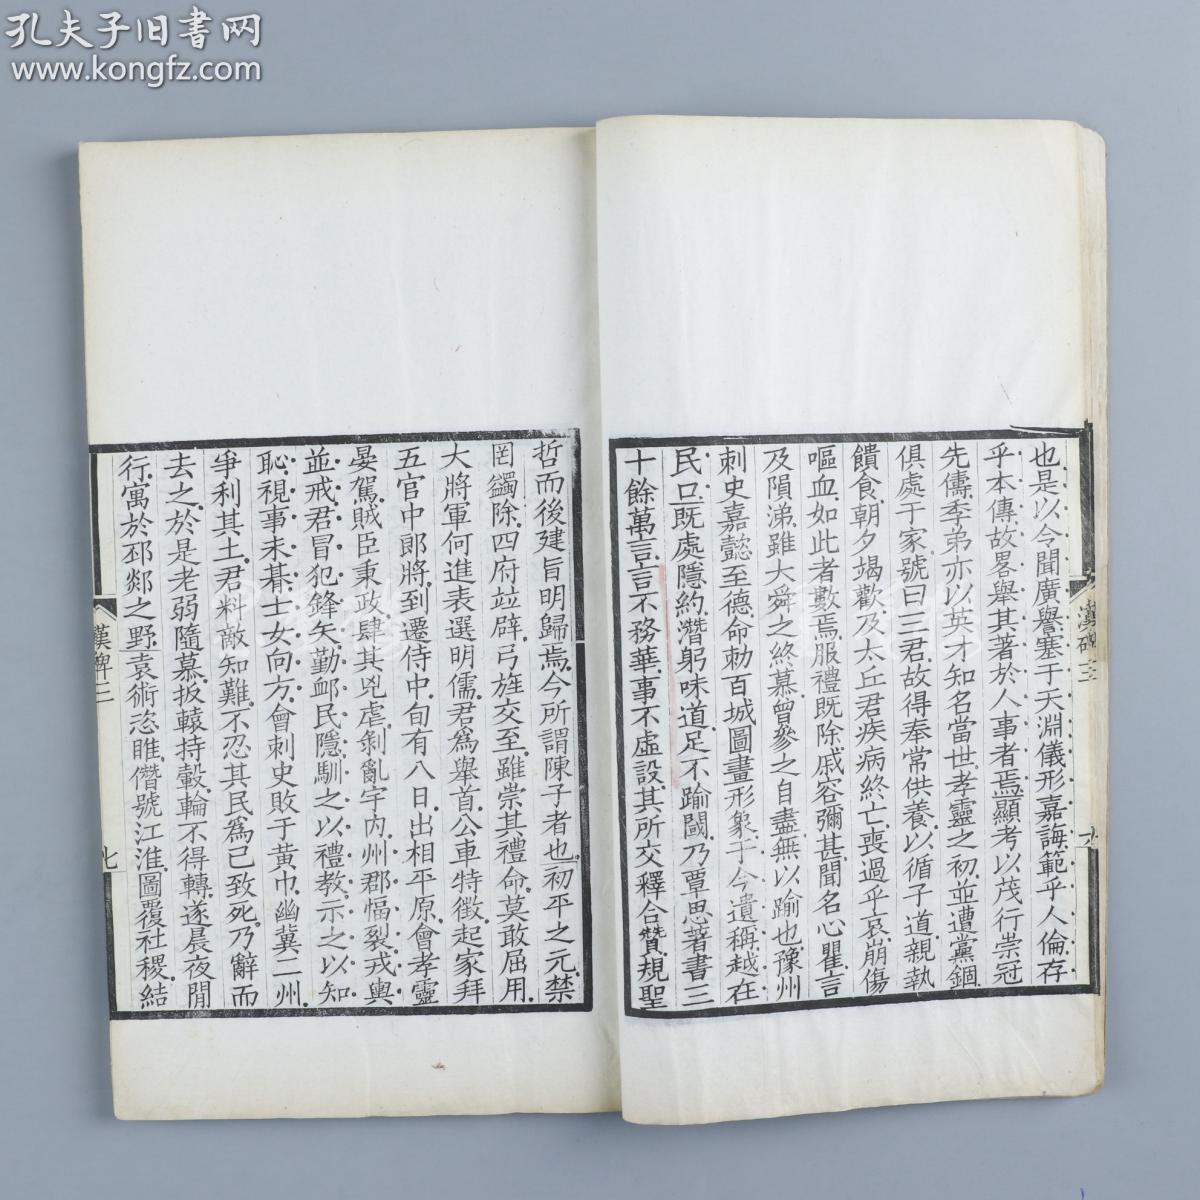 孔夫子旧书网
www.kongfz.com
也是以令聞廣譽塞于天淵儀形嘉誨範乎人倫存
乎本傳故畧舉其著於人事者焉顯考以茂行崇冠
先儔季弟亦以英才知名當世孝靈之初並遭黨錮
俱處于家號曰三君故得奉常供養以循子道親執
饋食朝夕竭歡乃太丘君疾病終亡喪過乎哀崩傷
嘔血如此者數焉服禮既除戚容彌甚聞名心瞿言
及隕涕雖大舜之終慕曾參之自盡無以踰也豫州
刺史嘉懿至德命勅百城圖畫形象于今遺稱越在
民口既處隱約潛躬味道足不踰閾乃覃思著書三
十餘萬言言不務華事不虛設其所交釋合贊規聖
漢碑三
六
哲而後建旨明歸焉今所謂陳子者也初平之元禁
罔蠲除四府竝辟弓旌交至雖崇其禮命莫敢屈用
大將軍何進表選明儒君為舉首公車特徵起家拜
五官中郎將到遷侍中旬有八日出相平原會孝靈
晏駕賊臣秉政肆其兇虐剝亂宇內州郡幅裂戎輿
並戒君冒犯鋒矢勤卹民隱馴之以禮教示之以知
恥視事未朞士女向方會刺史敗于黃巾幽冀二州
爭利其土君料敵知難不忍其民為己致死乃辭而
去之於是老弱隨慕扳轅持轂輪不得轉遂晨夜閒
行寓於邳郯之野袁術恣睢僭號江淮圖覆社稷結
漢碑三
七